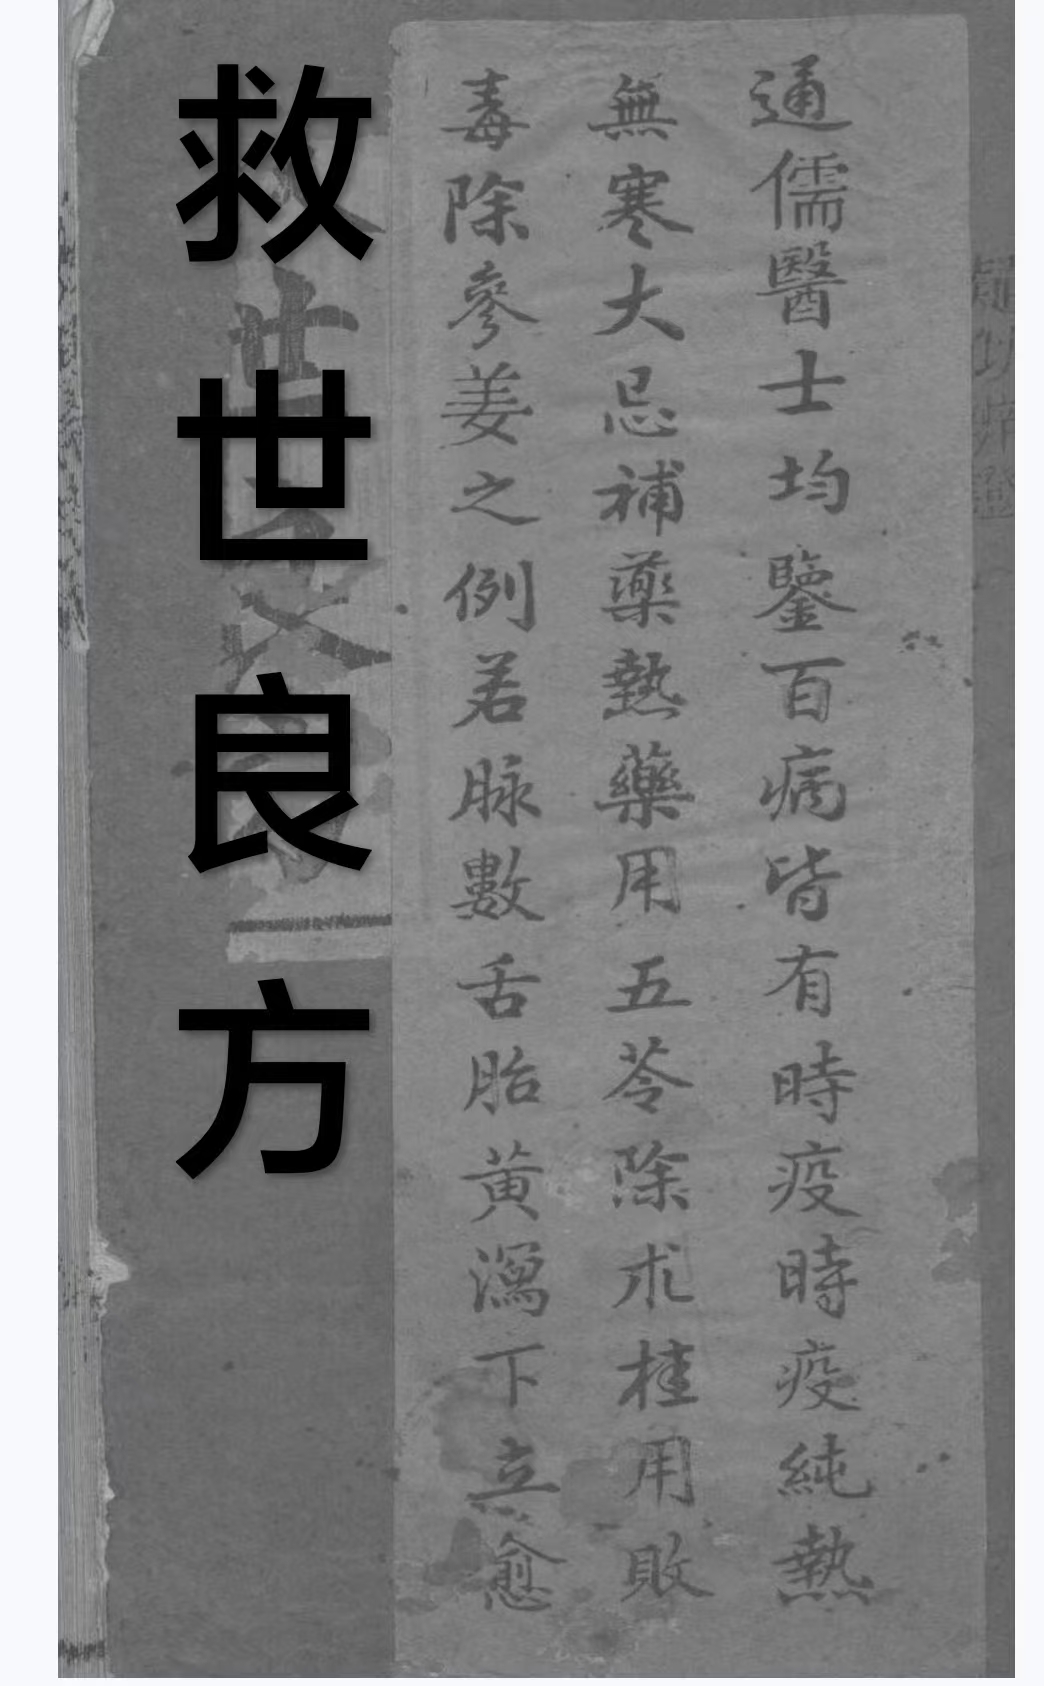 通儒醫士均鑒百病皆有時疫時疫純熱
無寒大忌補藥熱藥用五苓除朮桂用敗
毒除參姜之例若脉數舌胎黄瀉下立愈
救世良方